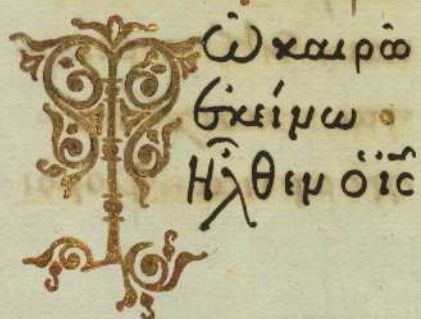 Τῶ καιρῶ
ἐκείνω
ἦλθεν ὁ ἰς̅